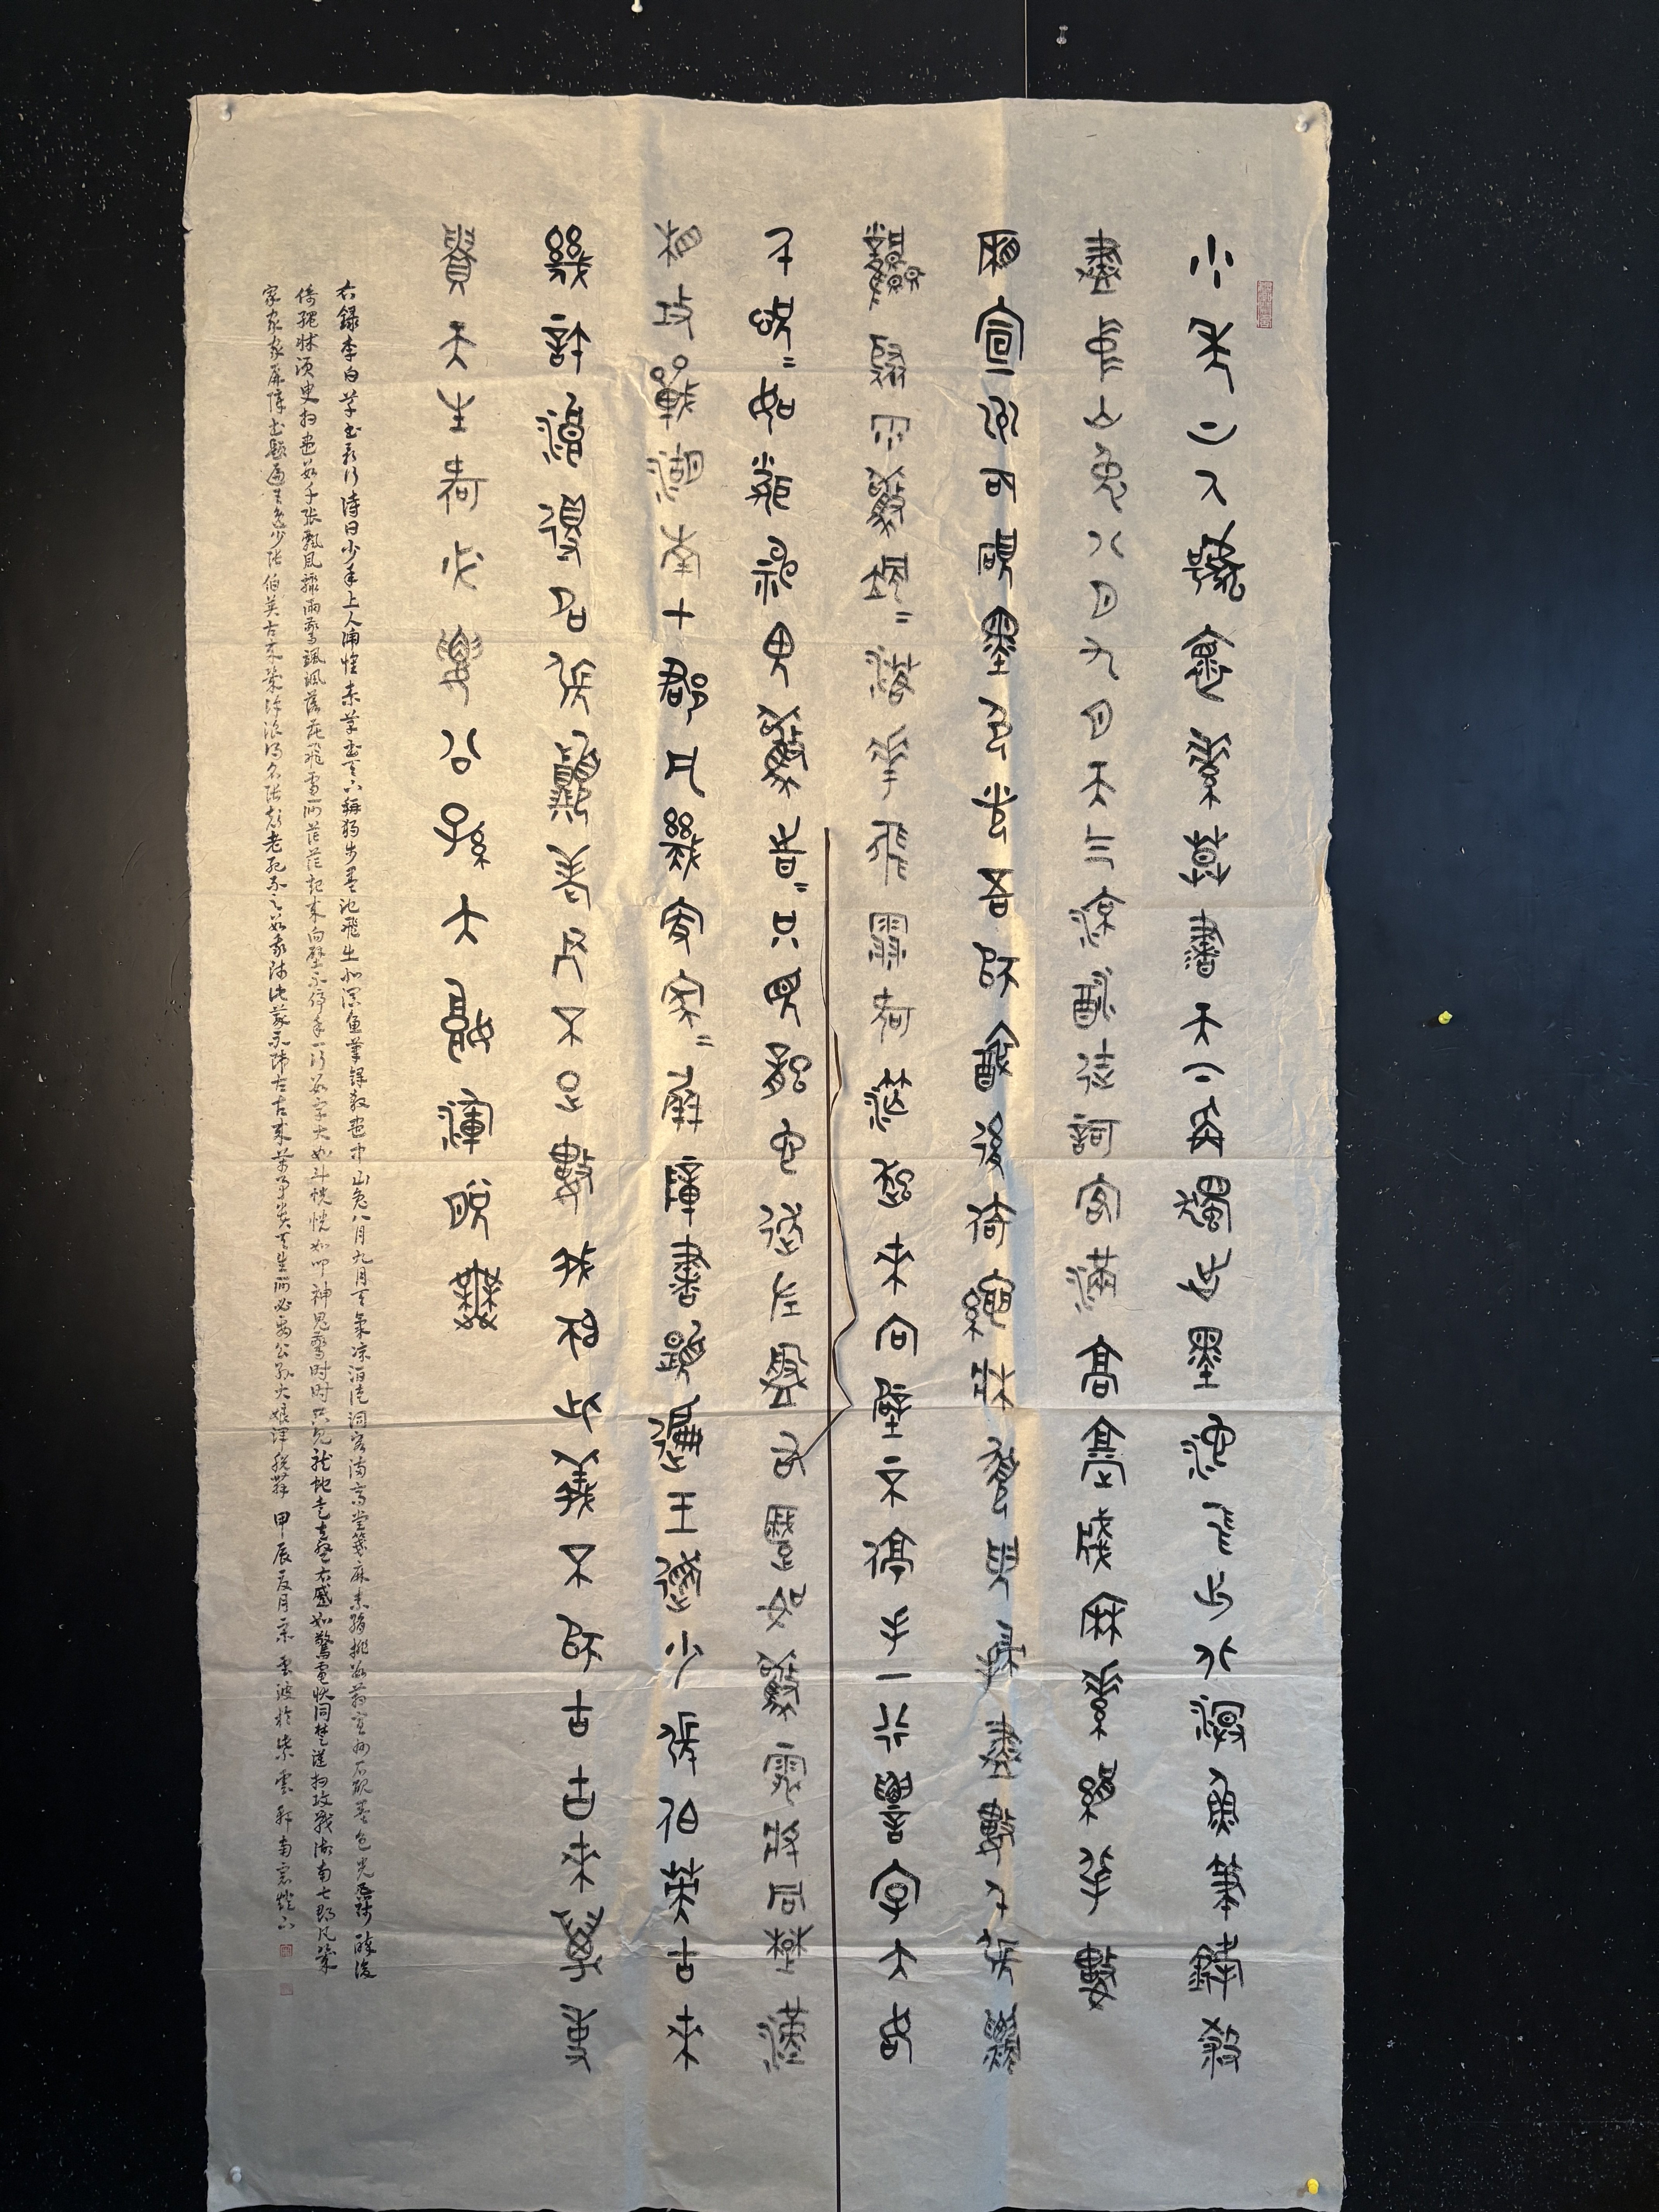 少年上人號懷素草書天下稱獨步墨池飛出北溟魚筆鋒殺
盡中山兔八月九月天气涼酒徒詞客滿高堂箋麻素絹排數
廂宣州石硯墨色光吾師醉後倚繩牀須臾掃盡數千張飄
風驟雨驚颯颯落花飛雪何茫茫起來向壁不停手一行數字大如
斗怳怳如聞神鬼驚時時只見龍蛇走左盤右蹙如驚電狀同楚漢
相攻戰湖南七郡凡幾家家家屏障書題遍王逸少張伯英古來
幾許浪得名張顛老死不足數我師此義不師古古來萬事
貴天生何必要公孫大娘渾脫舞
右錄李白草書歌行詩曰少年上人號懷素草書天下稱獨步墨池飛出北溟魚筆鋒殺盡中山兔八月九月天氣涼酒徒詞客滿高堂箋麻素絹排數箱宣州石硯墨色光吾師醉後
倚繩牀須臾掃盡數千張飄風驟雨驚颯颯落花飛雪何茫茫起來向壁不停手一行數字大如斗恍恍如聞神鬼驚時時只見龍蛇走左盤右蹙如驚電狀同楚漢相攻戰湖南七郡凡幾
家家家屏障書題遍王逸少張伯英古來幾許浪得名張顛老死不足數我師此義不師古古來萬事貴天生何必要公孫大娘渾脫舞 甲辰夏月宋雲波於紫雲軒南窗燈下